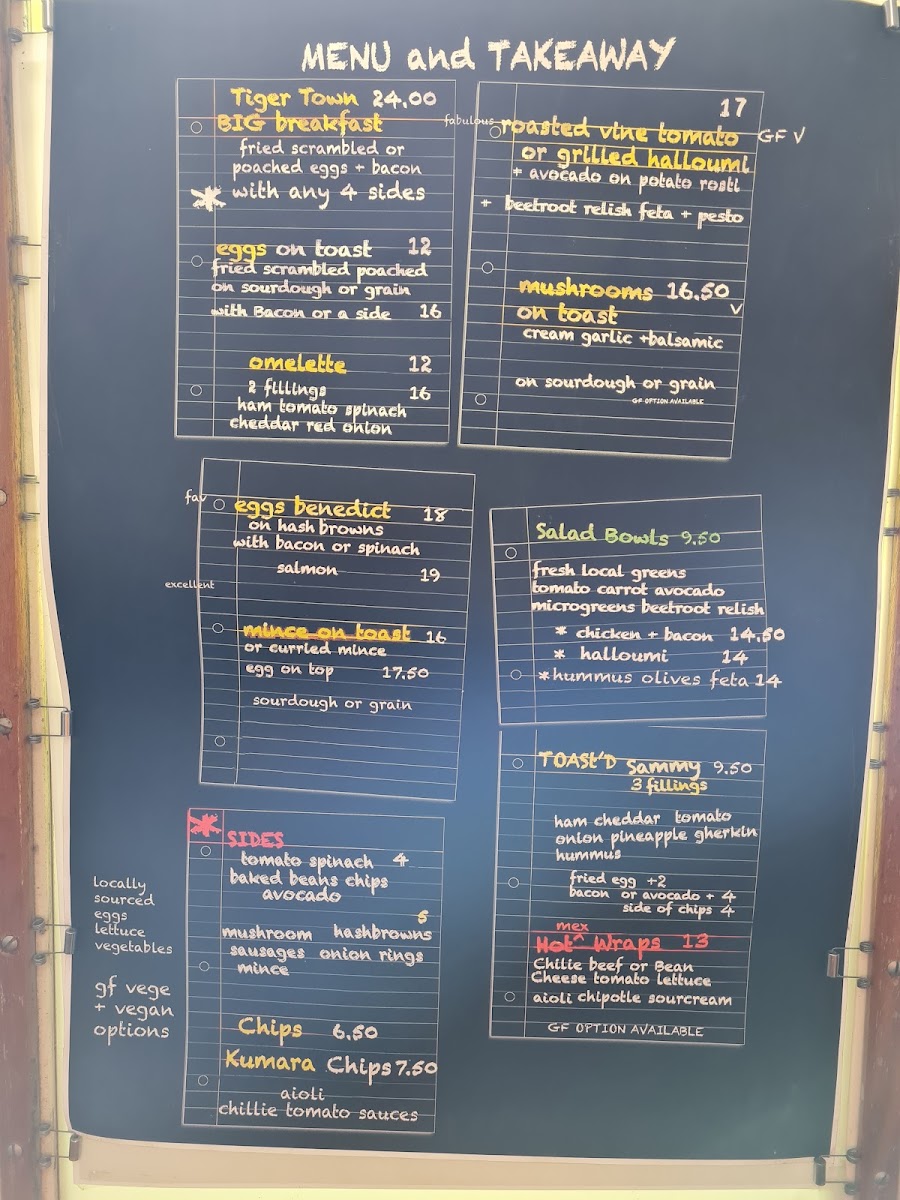 MENU and TAKEAWAY
Tiger Town 24.00
BIG breakfast
fried scrambled or
poached eggs + bacon
* with any 4 sides
eggs on toast 12
fried scrambled poached
on sourdough or grain
with Bacon or a side 16
omelette 12
2 fillings 16
ham tomato spinach
cheddar red onion
17
fabulous roasted vine tomato GF V
or grilled halloumi
+ avocado on potato rosti
+ beetroot relish feta + pesto
mushrooms 16.50
V
on toast
cream garlic +balsamic
on sourdough or grain
GF OPTION AVAILABLE
fav eggs benedict 18
on hash browns
with bacon or spinach
salmon 19
excellent
mince on toast 16
or curried mince
egg on top 17.50
sourdough or grain
Salad Bowls 9.50
fresh local greens
tomato carrot avocado
microgreens beetroot relish
* chicken + bacon 14.50
* halloumi 14
* hummus olives feta 14
* SIDES
tomato spinach 4
baked beans chips
avocado
5
mushroom hashbrowns
sausages onion rings
mince
Chips 6.50
Kumara Chips 7.50
aioli
chillie tomato sauces
locally
sourced
eggs
lettuce
vegetables
gf vege
+ vegan
options
TOAST'D Sammy 9.50
3 fillings
ham cheddar tomato
onion pineapple gherkin
hummus
fried egg +2
bacon or avocado + 4
side of chips 4
mex
Hot^ Wraps 13
Chilie beef or Bean
Cheese tomato lettuce
aioli chipotle sourcream
GF OPTION AVAILABLE